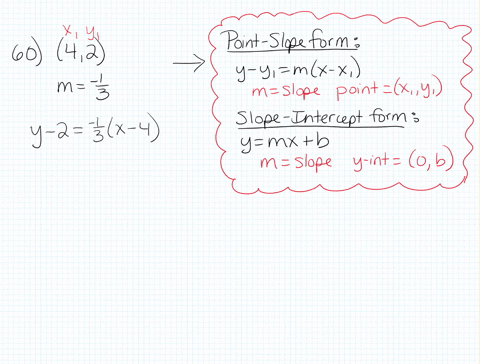 x₁ y₁
60) (4,2)
m = -1/3
y-2 = -1/3(x-4)
Point-Slope form:
y-y₁=m(x-x₁)
m=slope point=(x₁,y₁)
Slope-Intercept form:
y=mx+b
m=slope y-int=(0,b)